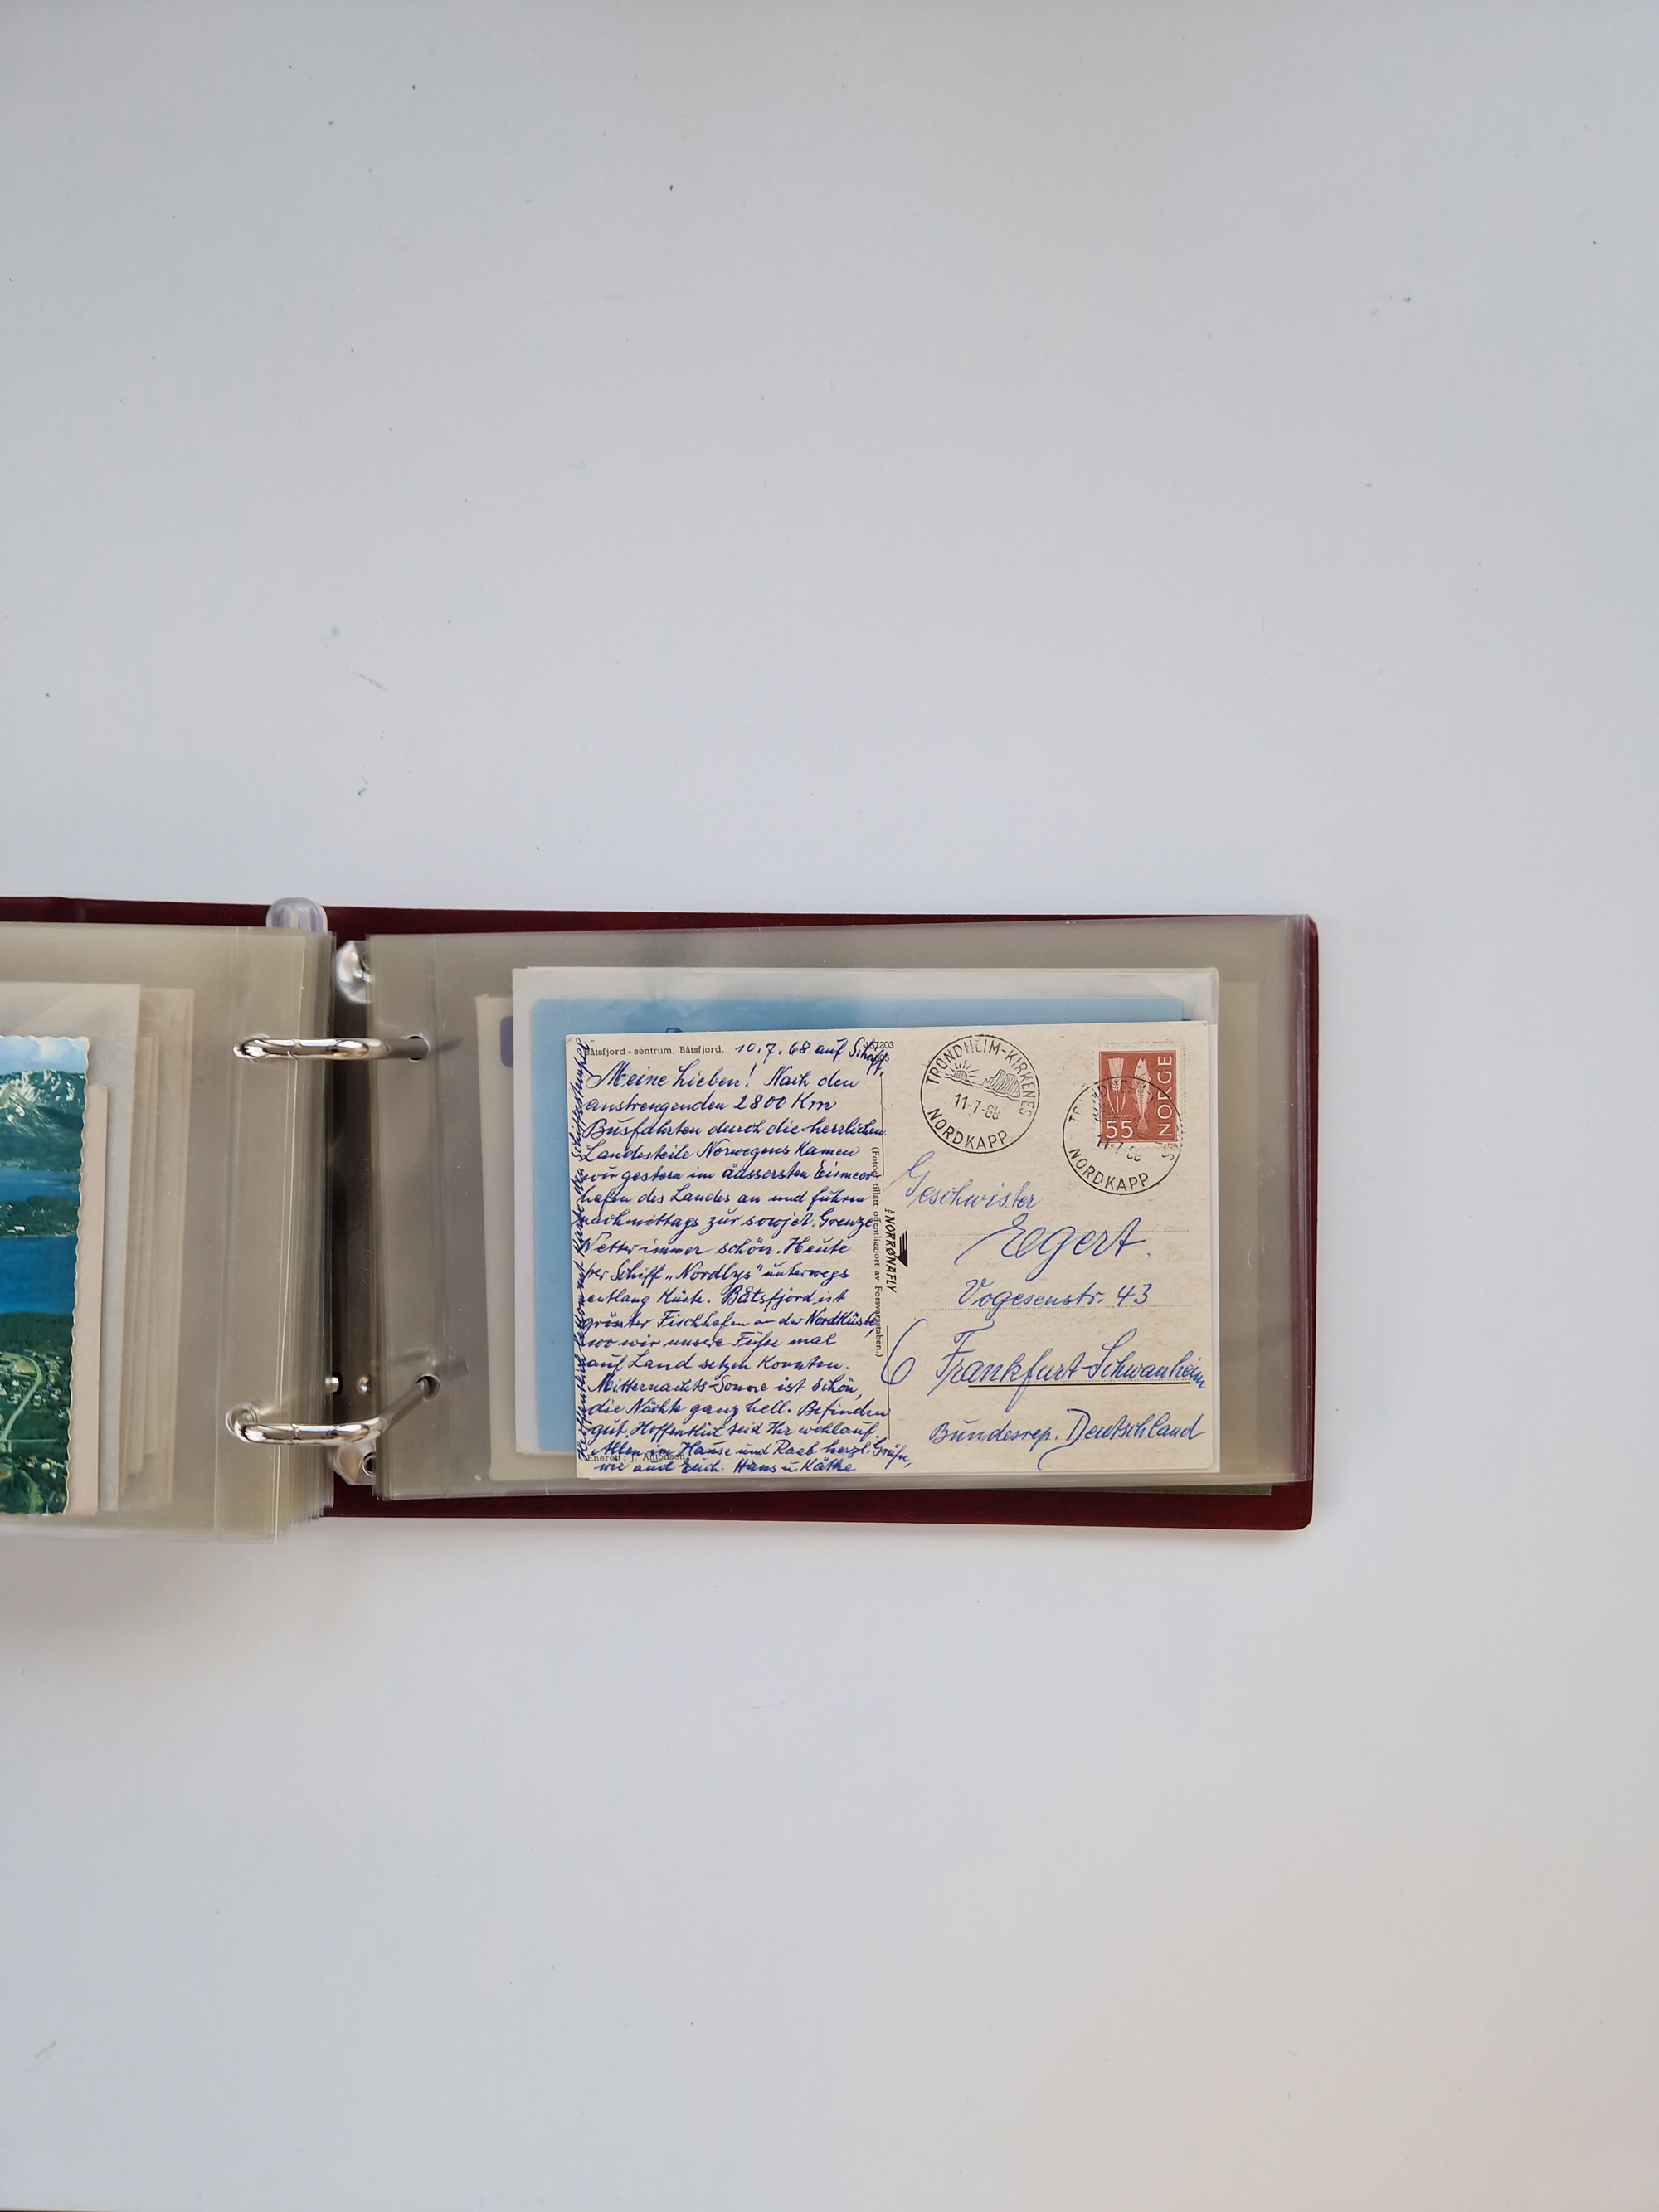 Båtsfjord - sentrum, Båtsfjord.
10.7.68 auf Schiff.
Meine Lieben! Nach den
anstrengenden 2800 Km
Busfahrten durch die herrlichen
Landesteile Norwegens kamen
wir gestern im äussersten Eismeer
hafen des Landes an und fuhren
nachmittags zur sowjet. Grenze
Wetter immer schön. Heute
per Schiff „Nordlys" unterwegs
entlang Küste. Båtsfjord ist
grösster Fischhafen an der Nordküste,
wo wir unsere Füße mal
auf Land setzen konnten.
Mitternachts-Sonne ist schön,
die Nächte ganz hell. Befinden
gut. Hoffentlich seid Ihr wohlauf.
Allen im Hause und Raab herzl. Grüße,
wie auch Euch. Hans u. Käthe
Hoffentlich bekommt Karte den Schiffsstempel
Enerett: J.
203
(Foto tillatt offentliggjort av Forsvarsstaben.)
NORRØNAFLY
TRONDHEIM-KIRKENES
11-7-68
NORDKAPP
NORGE
55
11-7-68
NORDKAPP
Geschwister
Egert.
Vogesenstr. 43
6 Frankfurt-Schwanheim
Bundesrep. Deutschland